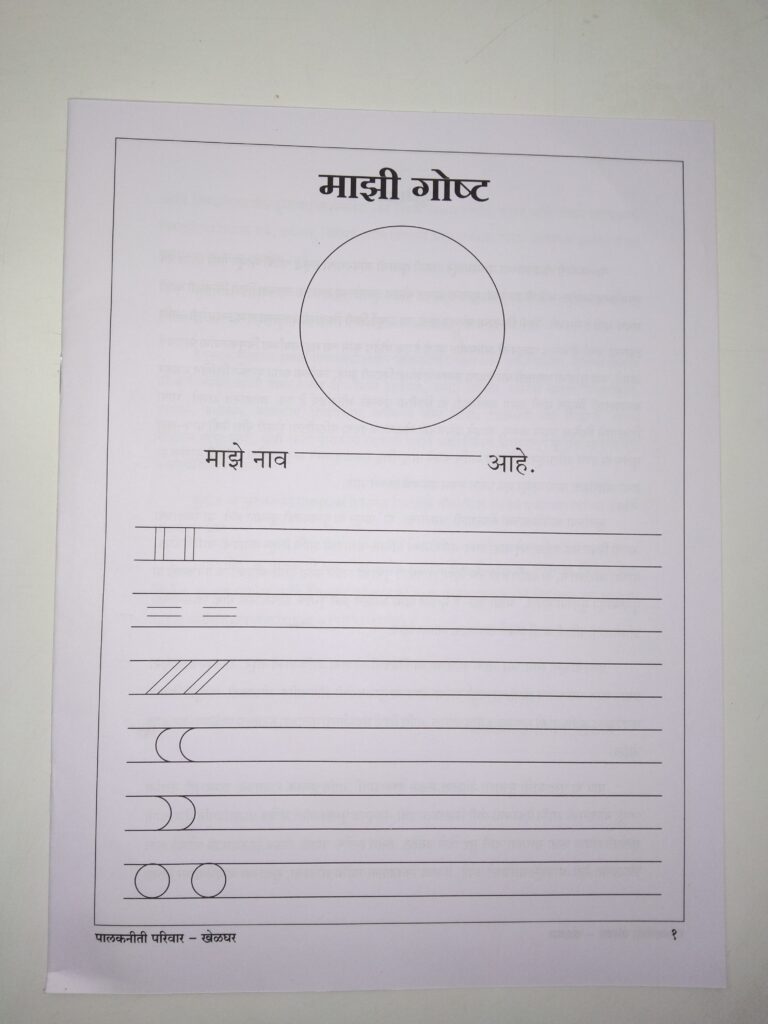 माझी गोष्ट
माझे नाव ____________ आहे.
पालकनीती परिवार – खेळघर १